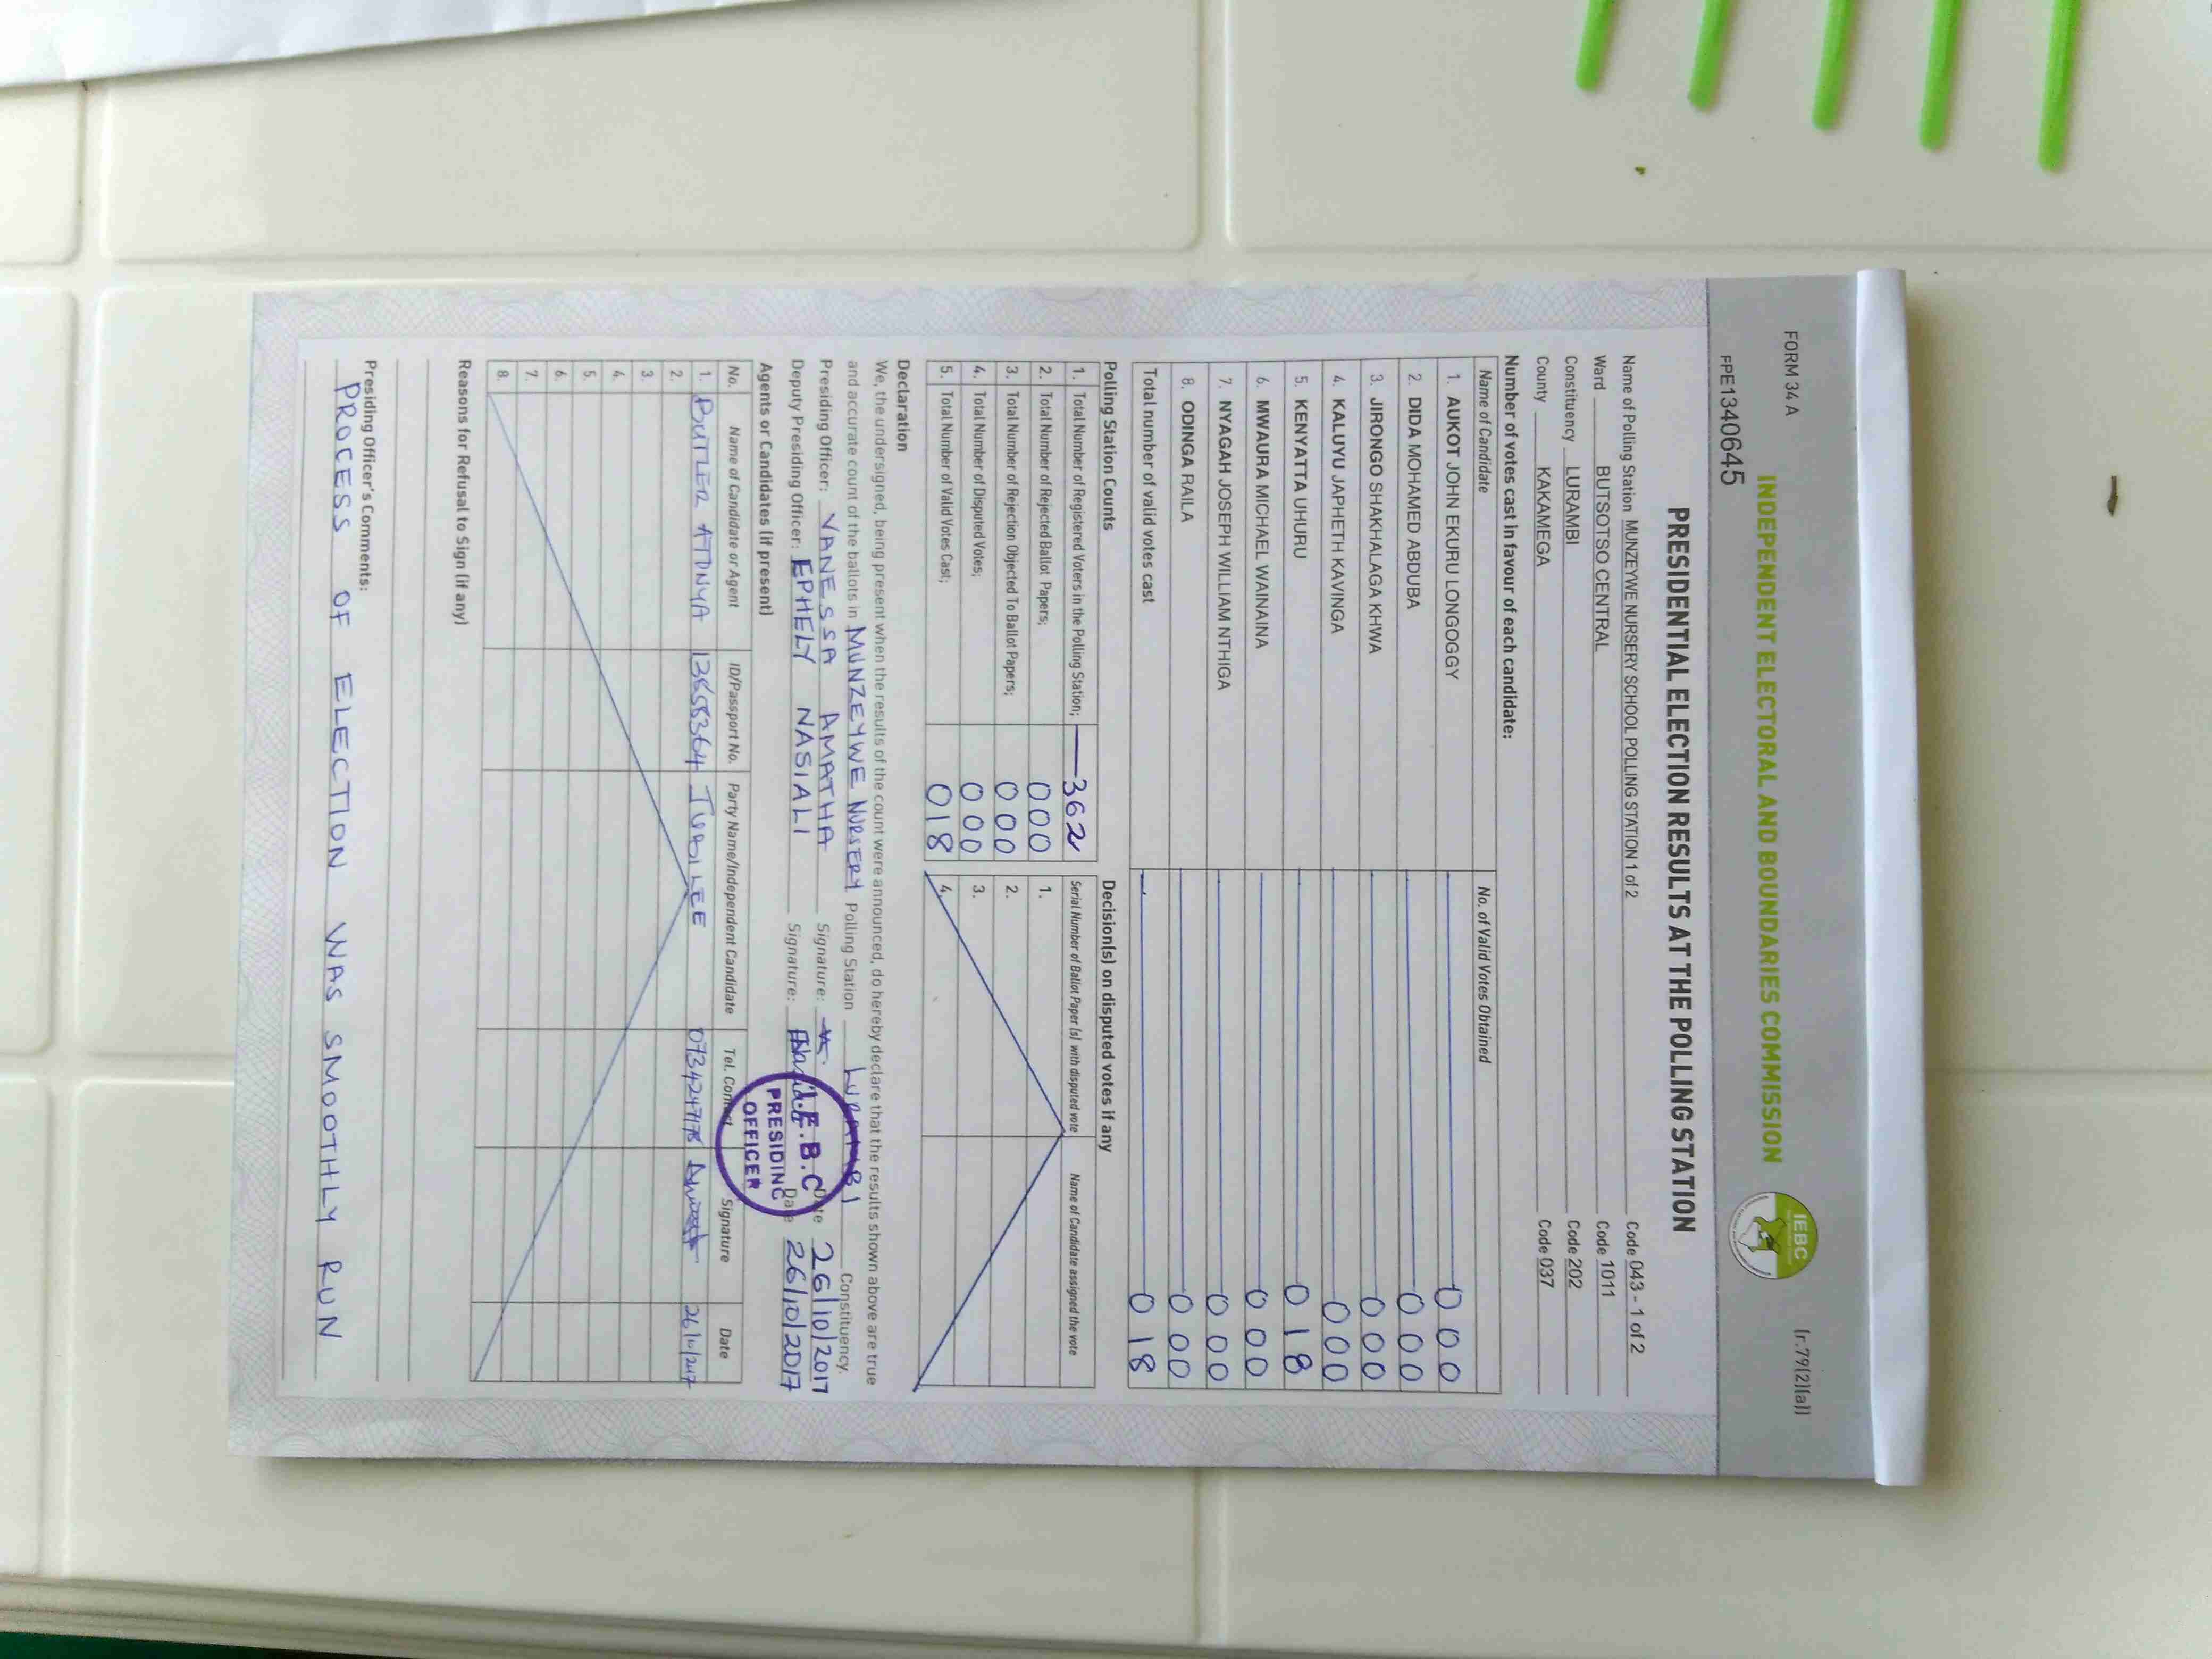 FORM 34 A
(r.79(2)(a))
INDEPENDENT ELECTORAL AND BOUNDARIES COMMISSION
IEBC
FPE1340645
PRESIDENTIAL ELECTION RESULTS AT THE POLLING STATION
Name of Polling Station MUNZEYWE NURSERY SCHOOL POLLING STATION 1 of 2 Code 043 - 1 of 2
Ward BUTSOTSO CENTRAL Code 1011
Constituency LURAMBI Code 202
County KAKAMEGA Code 037
Number of votes cast in favour of each candidate:
Name of Candidate No. of Valid Votes Obtained
1. AUKOT JOHN EKURU LONGOGGY 000
2. DIDA MOHAMED ABDUBA 000
3. JIRONGO SHAKHALAGA KHWA 000
4. KALUYU JAPHETH KAVINGA 000
5. KENYATTA UHURU 018
6. MWAURA MICHAEL WAINAINA 000
7. NYAGAH JOSEPH WILLIAM NTHIGA 000
8. ODINGA RAILA 000
Total number of valid votes cast 018
Polling Station Counts Decision(s) on disputed votes if any
1. Total Number of Registered Voters in the Polling Station; 362 Serial Number of Ballot Paper (s) with disputed vote Name of Candidate assigned the vote
2. Total Number of Rejected Ballot Papers; 000 1.
3. Total Number of Rejection Objected To Ballot Papers; 000 2.
4. Total Number of Disputed Votes; 000 3.
5. Total Number of Valid Votes Cast; 018 4.
Declaration
We, the undersigned, being present when the results of the count were announced, do hereby declare that the results shown above are true
and accurate count of the ballots in MUNZEYWE NURSERY Polling Station LURAMBI Constituency.
Presiding Officer: VANESSA AMATHA Signature: Date 26/10/2017
Deputy Presiding Officer: EPHELY NASIALI Signature: Date 26/10/2017
I.E.B.C
PRESIDING
OFFICER
Agents or Candidates (if present)
No. Name of Candidate or Agent ID/Passport No. Party Name/Independent Candidate Tel. Contact Signature Date
1. BUTLER 13658364 JUBILEE 26/10/2017
2.
3.
4.
5.
6.
7.
8.
Reasons for Refusal to Sign (if any)
Presiding Officer's Comments:
PROCESS OF ELECTION WAS SMOOTHLY RUN